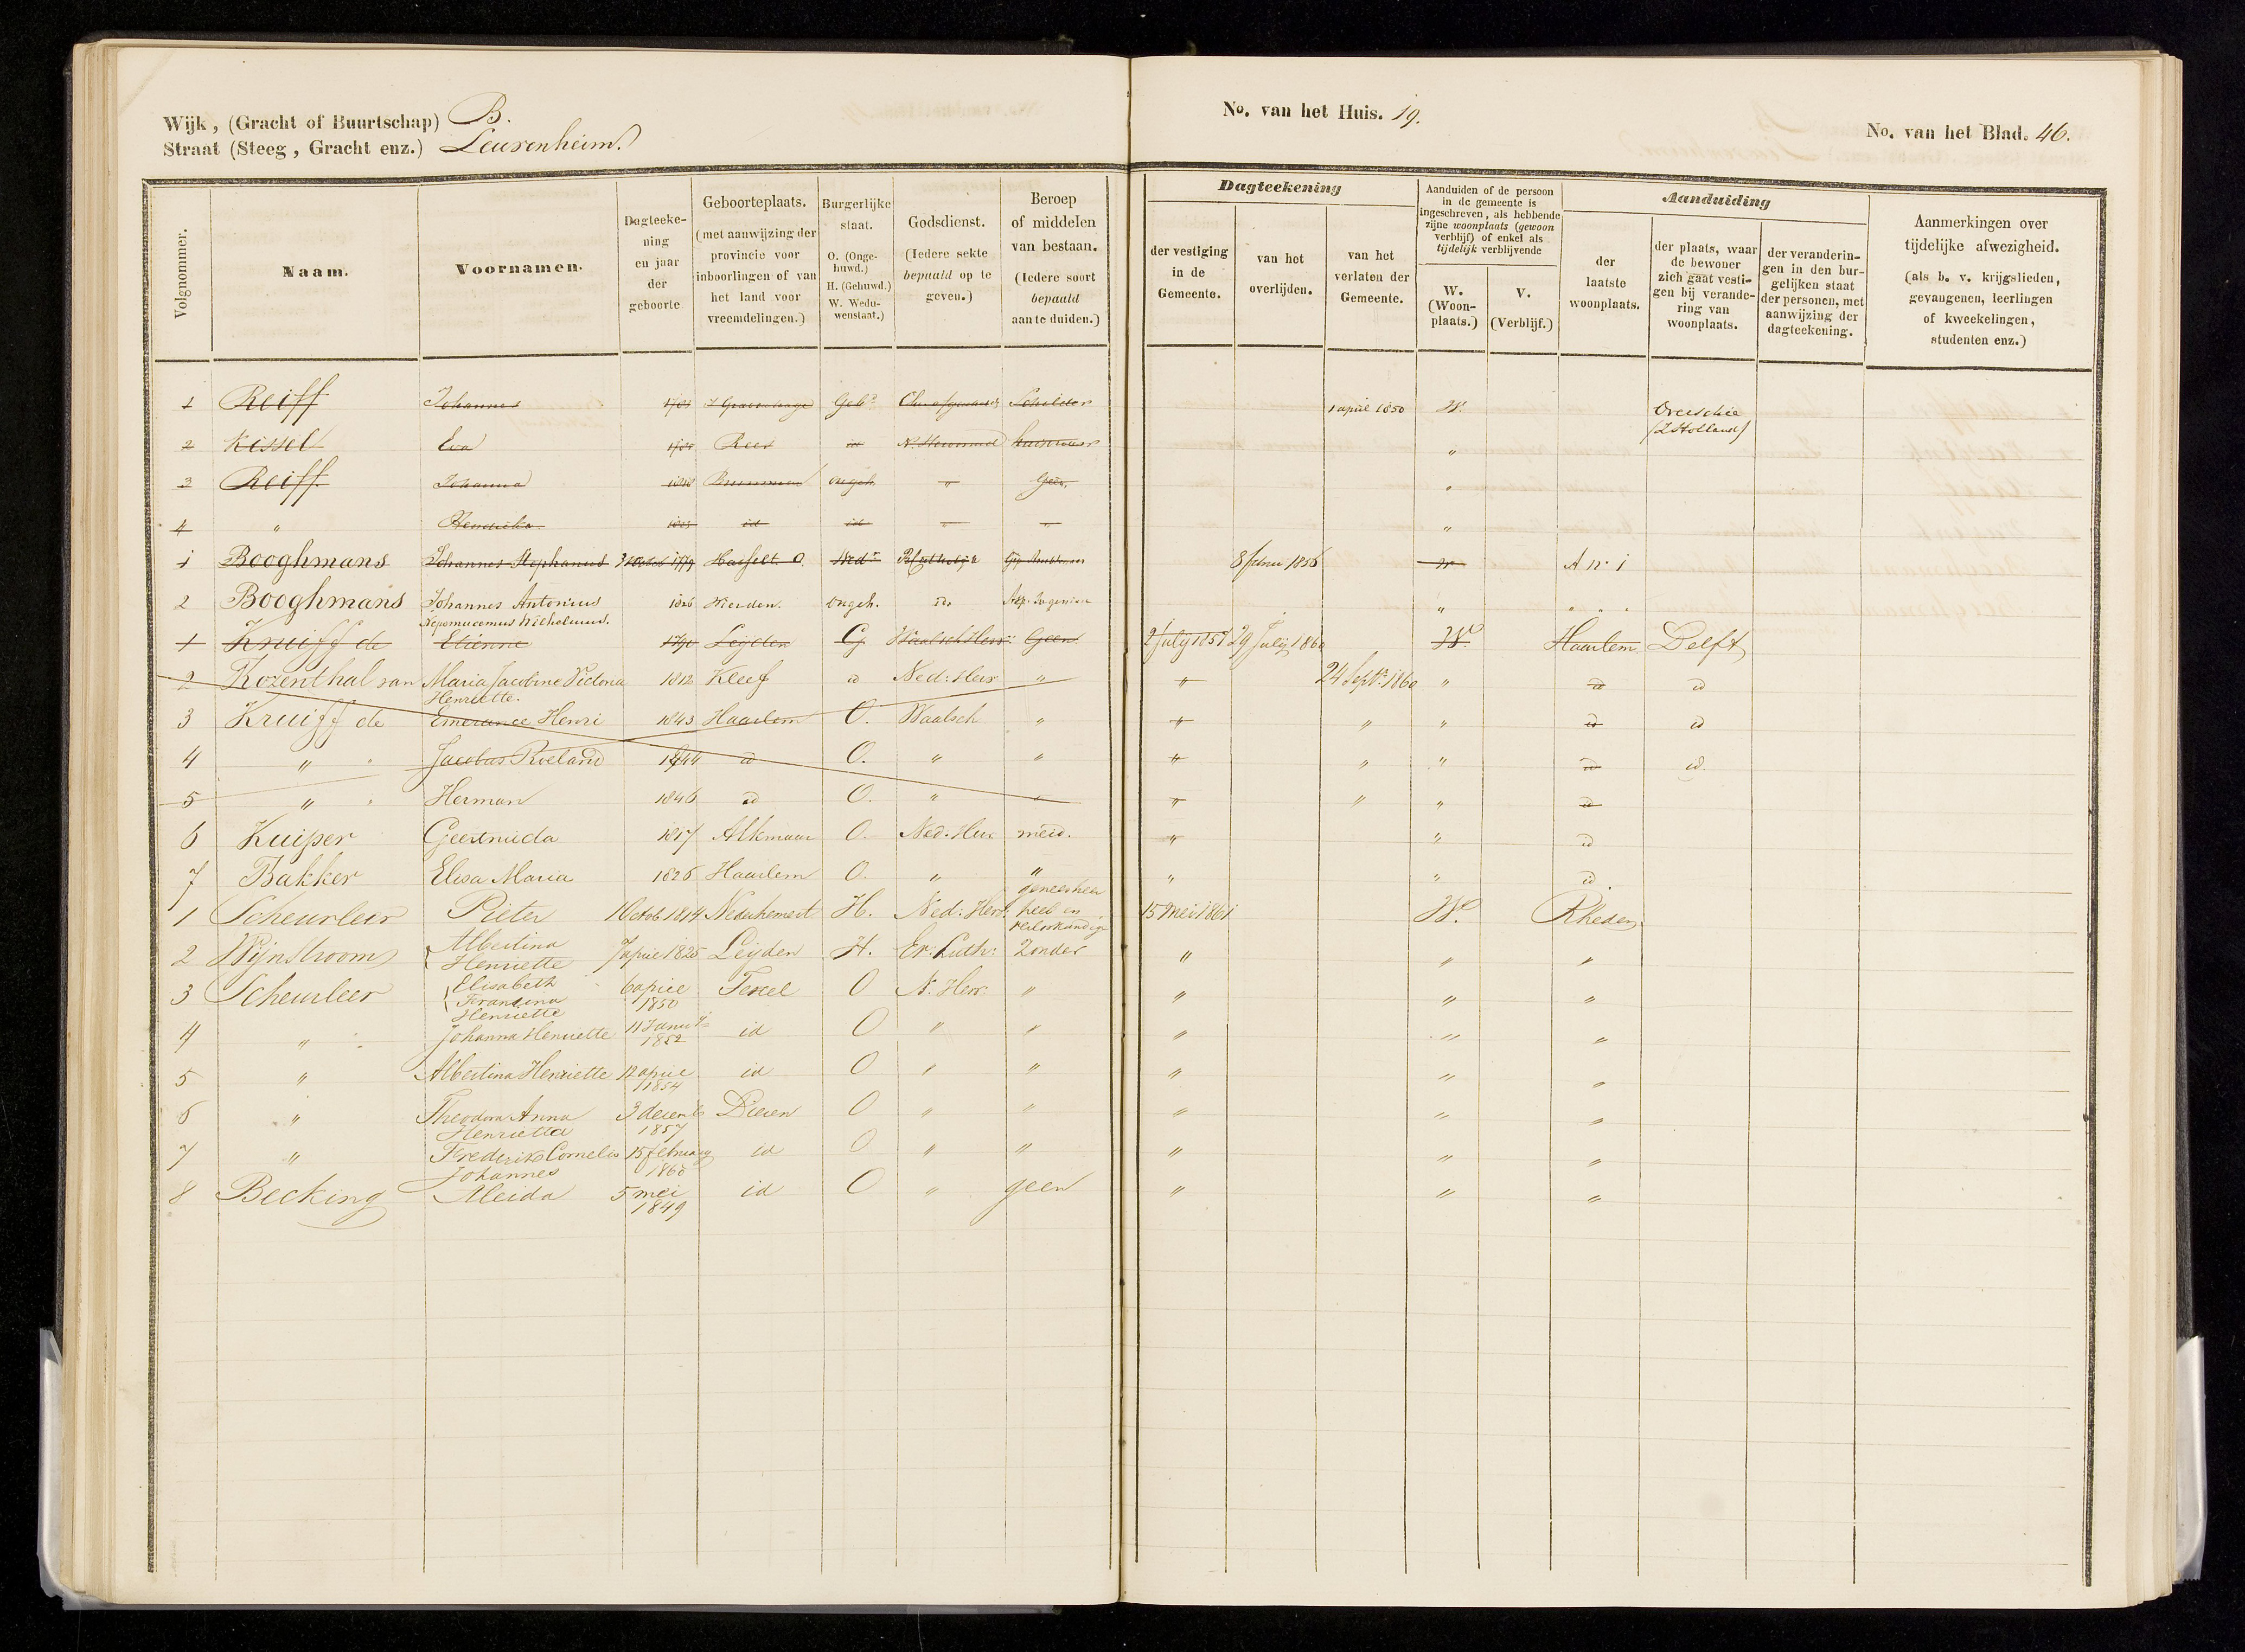 Wijk, (Gracht of Buurtschap) B.
Straat (Steeg, Gracht enz.) Leusenheim.
No. van het Huis. 19.
No. van het Blad. 46.
Volgnommer.
Naam.
Voornamen.
Dagteeke-
ning
en jaar
der
geboorte
Geboorteplaats.
(met aanwijzing der
provincie voor
inboorlingen of van
het land voor
vreemdelingen.)
Burgerlijke
staat.
O. (Onge-
huwd.)
H. (Gehuwd.)
W. Wedu-
wenstaat.)
Godsdienst.
(Iedere sekte
bepaald op te
geven.)
Beroep
of middelen
van bestaan.
(Iedere soort
bepaald
aan te duiden.)
Dagteekening
der vestiging
in de
Gemeente.
van het
overlijden.
van het
verlaten der
Gemeente.
Aanduiden of de persoon
in de gemeente is
ingeschreven, als hebbende
zijne woonplaats (gewoon
verblijf) of enkel als
tijdelijk verblijvende
W.
(Woon-
plaats.)
V.
(Verblijf.)
Aanduiding
der
laatste
woonplaats.
der plaats, waar
de bewoner
zich gaat vesti-
gen bij verande-
ring van
woonplaats.
der veranderin-
gen in den bur-
gelijken staat
der personen, met
aanwijzing der
dagteekening.
Aanmerkingen over
tijdelijke afwezigheid.
(als b. v. krijgslieden,
gevangenen, leerlingen
of kweekelingen,
studenten enz.)
1 Reiff Johannes s'Gravenhage Geh. Schilder 1 april 1850 W. Overschie
(Z Holland)
2 Kissel Eva Rees id "
3 Reiff Johanna Brummen ongeh. " Geen. "
4 " Hendrika id id " " "
1 Booghmans Johannes Stephanus 1779 Hasselt O. Wed. 8 febru 1856 W A no 1
2 Booghmans Johannes Antonius 1826 Wierden. ongeh. id. Asp. Ingenieur " " " "
Nepomucemus Wilhelmus.
1 Kruiff de Etiénne 1790 Leijden G. Waalsch Herv: Geen. 2 july 1857 29 July 1860 W. Haarlem Delft
2 Rozenthal van Maria Jacobine Victoria 1812 Kleef id Ned: Herv " " 24 Septr. 1860 " id id
Henriette.
3 Kruiff de Emerance Henri 1843 Haarlem O. Waalsch " " " " id id
4 " " Jacobus Roeland 1844 id O. " " " " " id id.
5 " " Herman 1846 id O. " " " " " id
6 Kuiper Geertruida 1817 Alkmaar O. Ned. Herv meid. " " id
7 Bakker Elisa Maria 1826 Haarlem O. " " " " id
1 Scheurleer Pieter 1 Octob. 1814 Nederhemert H. Ned: Herv: geneesheer
heel en
verloskundige 15 Mei 1861 W. Rheden
2 Wijnstroom Albertina
Henriette 7 april 1825 Leijden H. Ev. Luth: Zonder " " "
3 Scheurleer Elisabeth
Fransina
Henriette 6 april
1850 Texel O N. Herv. " " " "
4 " " Johanna Henriette 11 Janur
1852 id O " " " " "
5 " Albertina Henriette 12 april
1854 id O " " " " "
6 " Theodora Anna
Henrietta 3 decemb
1857 Dieren O " " " " "
7 " Frederik Cornelis
Johannes 15 february
1860 id O " " " " "
8 Becking Aleida 5 mei
1849 id O " geen " " "